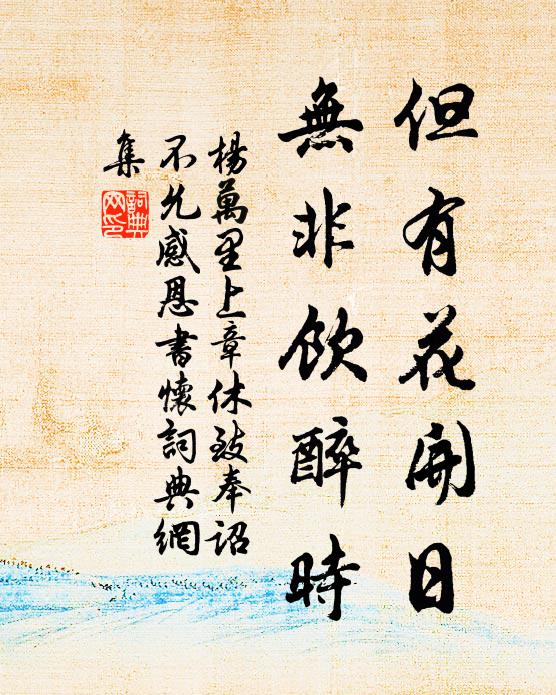 但有花開日
無非飲醉時
楊萬里上章休致奉詔
不允感恩書懷詞典網
集
詞典
网印